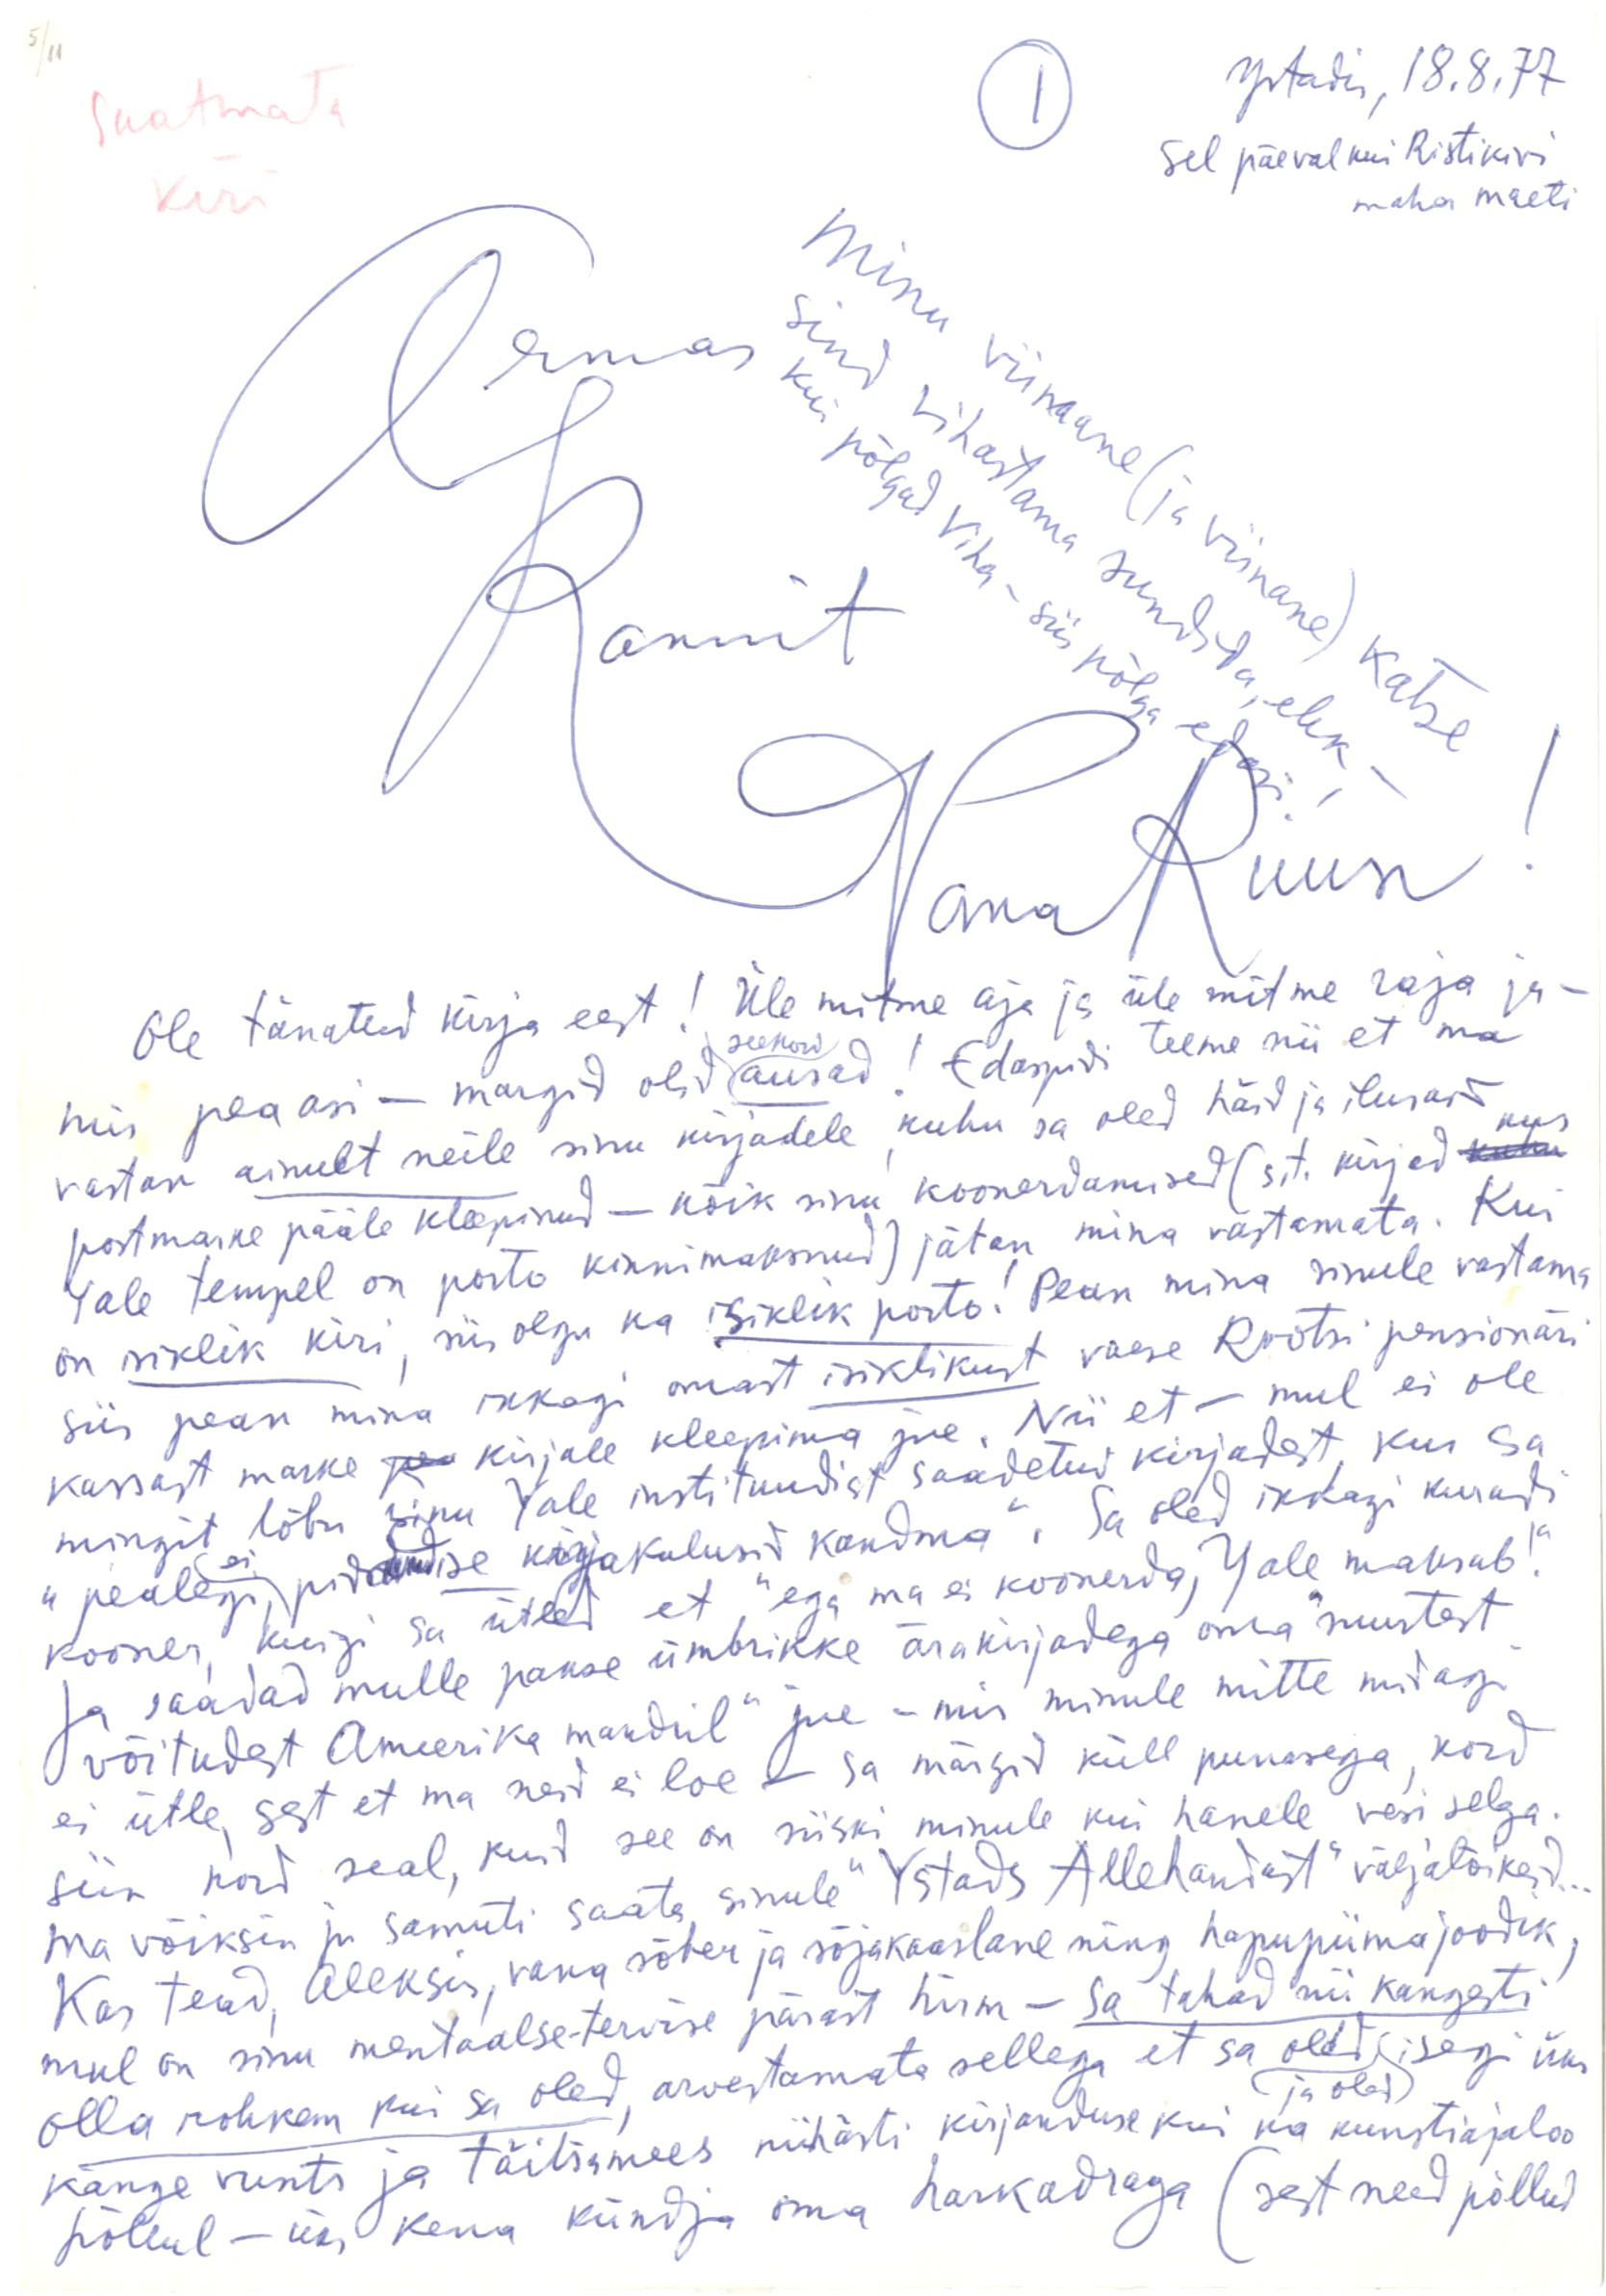 5/11
Saatmata
kiri
1
Ystadis, 18.8.77
Sel päeval kui Ristikivi
maha maeti
Minu viimane (ja viinane) katse
sind vihastama sundida, ehk –
kui põlgad viha – siis põlga edasi!
Armas
Rannit
Vana Ruun!
Ole tänatud kirja eest! Üle mitme aja ja üle mitme raja ja –
mis peaasi – margid olid seekord ausad! Edaspidi teeme nii et ma
vastan ainult neile sinu kirjadele, kuhu sa oled häid ja ilusaid
postmarke pääle kleepinud – kõik sinu koonerdamised (s.t. kirjad kus
Yale tempel on porto kinnimaksnud) jätan mina vastamata. Kui
on isiklik kiri, siis olgu ka isiklik porto! Pean mina sinule vastama
siis pean mina ikkagi omast isiklikust vaese Rootsi pensionäri
kassast marke kirjale kleepima jne. Nii et – mul ei ole
mingit lõbu sinu Yale instituudist saadetud kirjadest, kus sa
"pealegi, ei pidand ise kirjakulusid kandma". Sa oled ikkagi kuradi
kooner, kuigi sa ütled et "ega ma ei koonerda, Yale maksab!"
Ja saadad mulle pakse ümbrikke ärakirjadega oma "suurtest
võitudest Ameerika mandril" jne – mis minule mitte midagi
ei ütle, sest et ma neid ei loe – sa märgid küll punasega, kord
siin kord seal, kuid see on siiski minule kui hanele vesi selga.
Ma võiksin ju samuti saata sinule "Ystads Allehandast" väljalõikeid...
Kas tead, Aleksis, vana sõber ja sõjakaaslane ning hapupiimajoodik,
mul on sinu mentaalse-tervise pärast hirm – sa tahad nii kangesti
olla rohkem kui sa oled, arvestamata sellega et sa olid (ja oled) isegi üks
kange vunts ja täitsamees niihästi kirjanduse kui ka kunstiajaloo
põllul – üks kena kündja oma harkadraga (sest need põllud